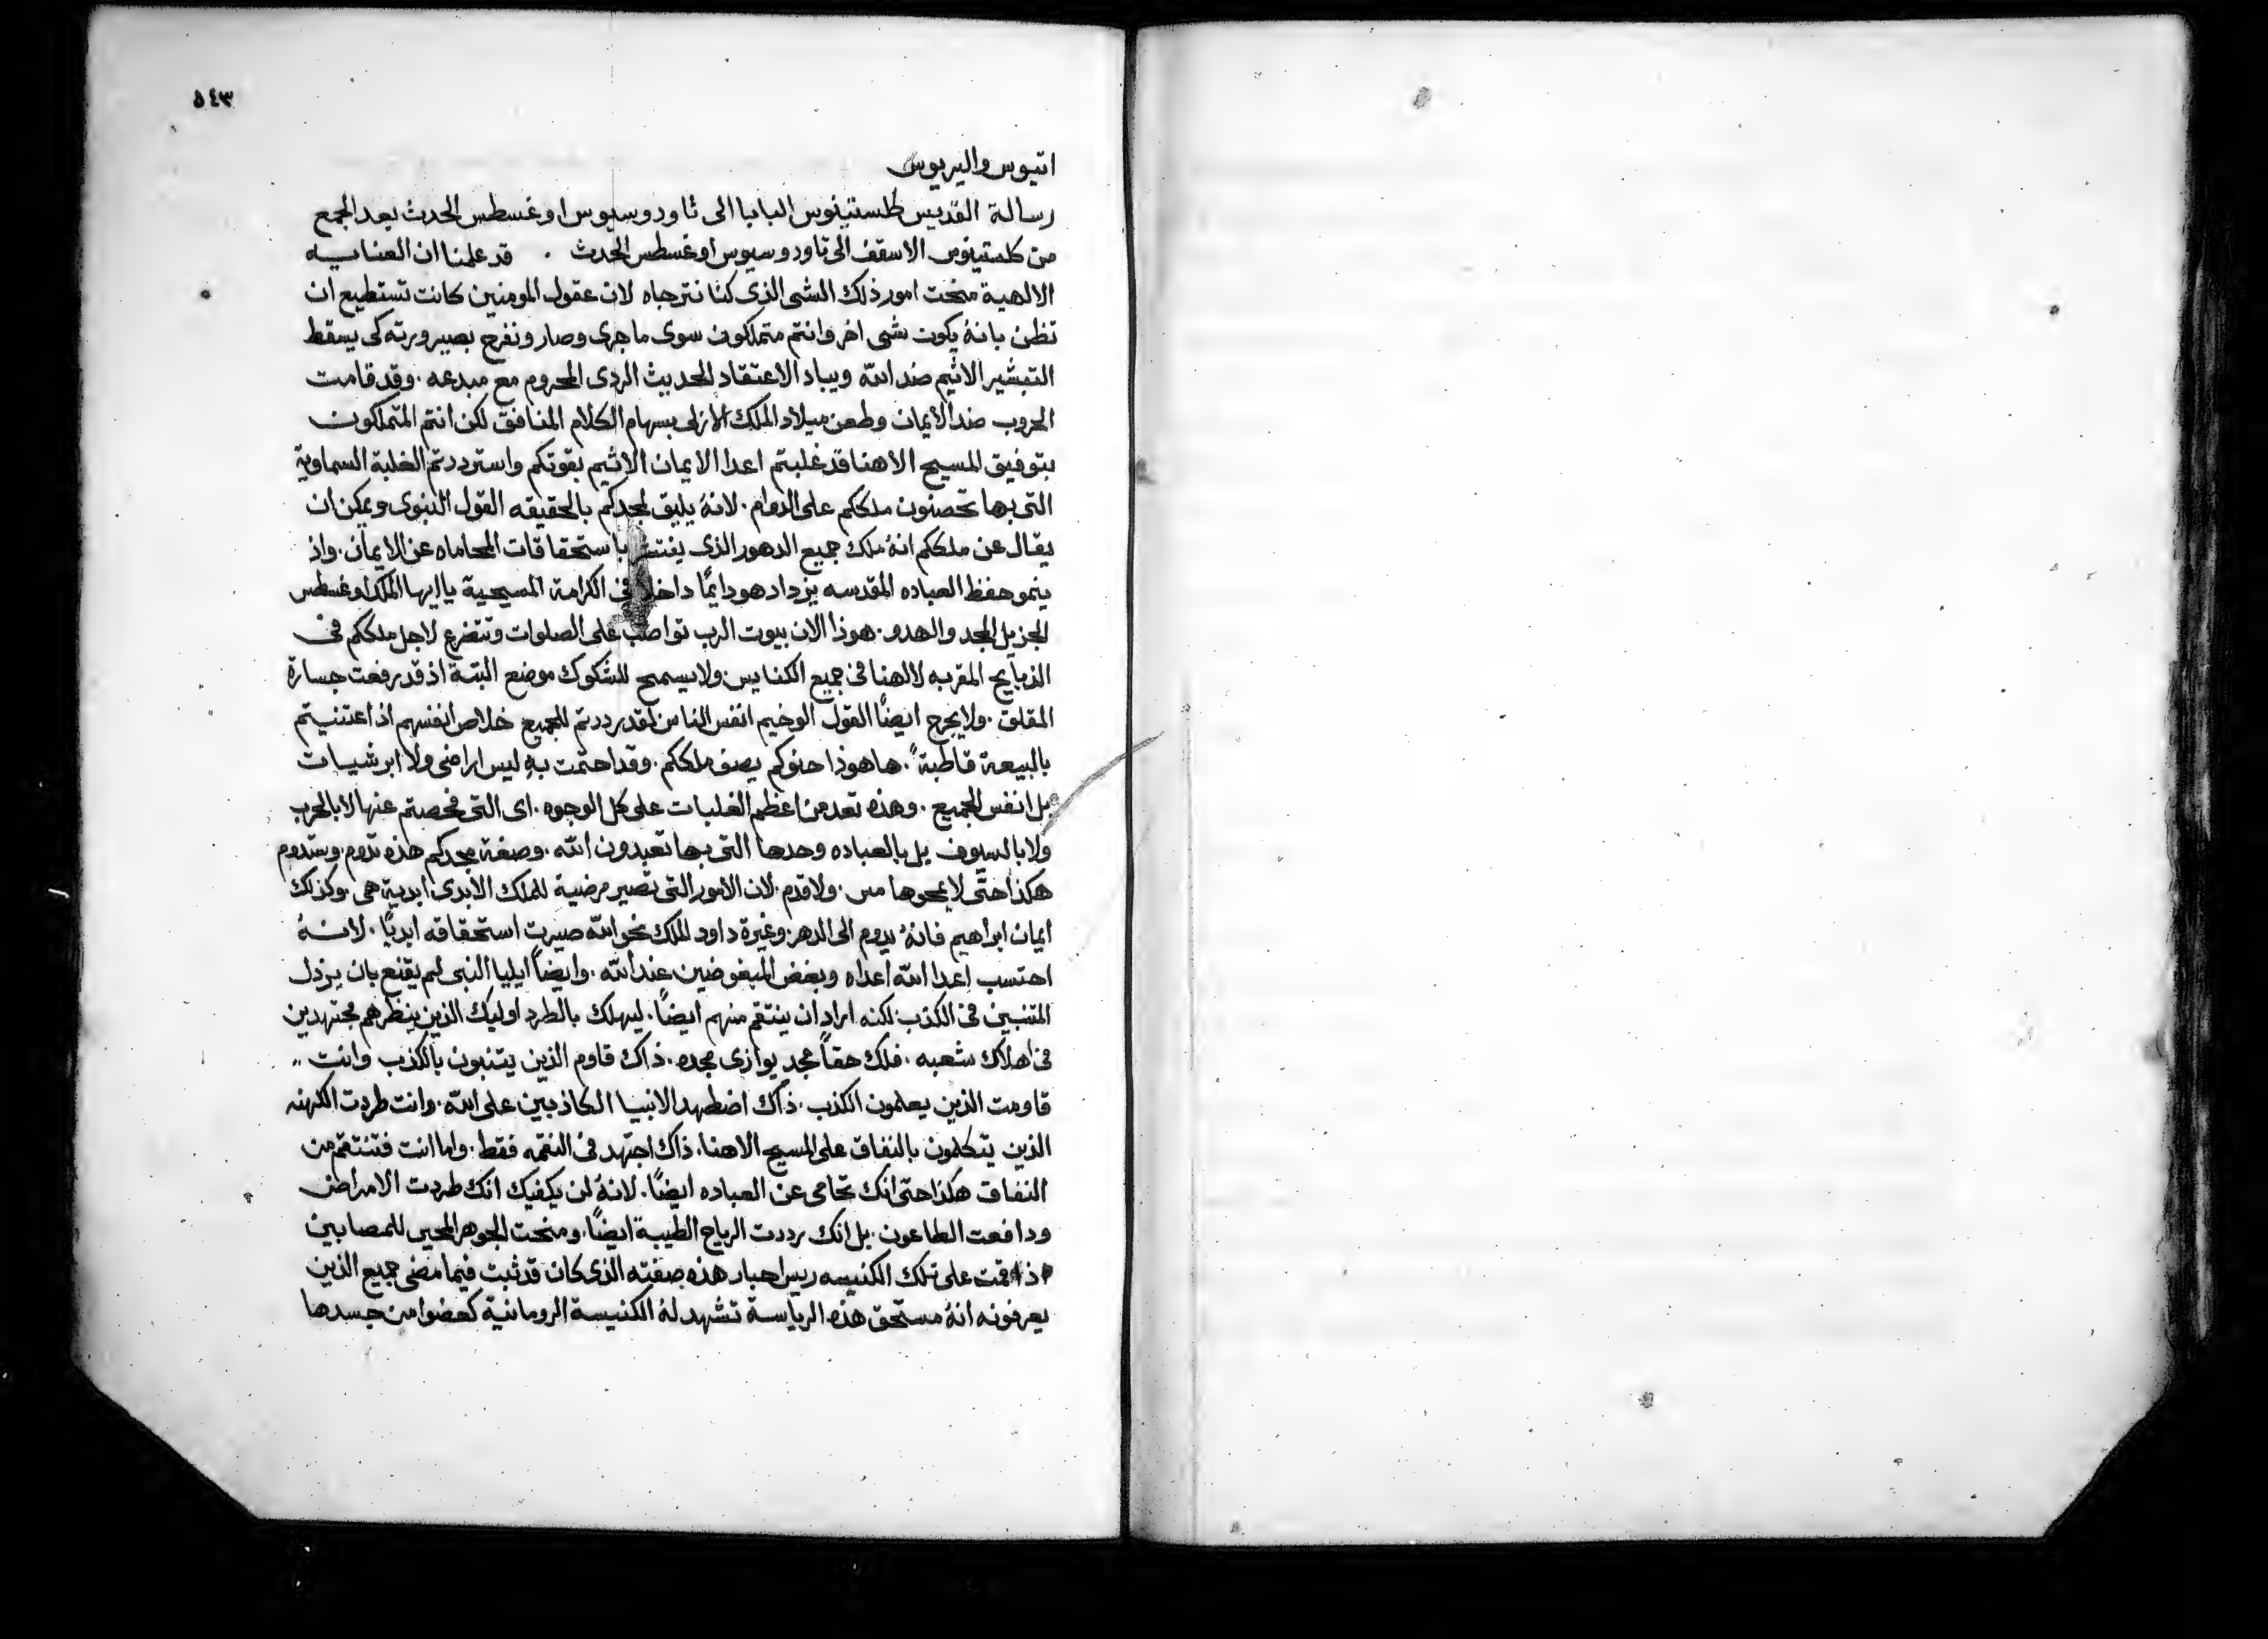 ٥٤٣
اتيوس واليريوس
رسالة القديس كلستينوس البابا الى ثاودوسيوس اوغسطس الحدث بعد المجمع
من كلستينوس الاسقف الى تاودوسيوس اوغسطس الحدث . قد علمنا ان العنايه
الالهية منحت امور ذلك الشى الذى كنا نترجاه لان عقول المومنين كانت تستطيع ان
تظن بانهُ يكون شى اخر وانتم متملكون سوى ما جرى وصار ونفرح بصيرورته كى يسقط
التبشير الاثيم ضد الله ويباد الاعتقاد الحديث الردى المحروم مع مبدعه . وقد قامت
الحروب ضد الايمان وطعن ميلاد الملك الازلى بسهام الكلام المنافق لكن انتم المتملكون
بتوفيق المسيح الاهنا قد غلبتم اعدا الايمان الاثيم بقوتكم واسترددتم الغلبة السماوية
التى بها تحصنون ملككم على الدوام . لانهُ يليق لمجدكم بالحقيقه القول النبوى ويمكن ان
يقال عن ملككم انهُ ملك جميع الدهور الذى باستحقاقات المحاماه عن الايمان . واذ
ينمو حفظ العباده المقدسه يزداد هو دايمًا داخلا فى الكرامة المسيحية يا ايها الملك اوغسطس
الجزيل المجد والهدو . هوذا الان بيوت الرب تواضب على الصلوات وتتضرع لاجل ملككم فى
الذبايح المقربه لالهنا فى جميع الكنايس . ولا يسمح للشكوك موضع البتة اذ قد رفعت جسارة
المقلق . ولا يجرح ايضًا القول الوخيم انفس الناس لقد رددتم للجميع خلاص انفسهم اذ اعتنيتم
بالبيعة قاطبةً . ها هوذا حنوكم يصف ملككم . وقد احتمت به ليس اراضى ولا ابرشيات
بل انفس الجميع . وهذه تعد من اعظم الغلبات على كل الوجوه . اى التى فحصتم عنها لا بالحرب
ولا بالسيوف بل بالعباده وحدها التى بها تعبدون الله . وصفة مجدكم هذه تدوم . وستدوم
هكذا حتى لا يمحوها مس . ولا قدم . لان الامور التى تصير مرضية للملك الابدى ابدية هى . وكذلك
ايمان ابراهيم فانهُ يدوم الى الدهر . وغيرة داود الملك نحو الله صيرت استحقاقه ابديًا . لانهُ
احتسب اعدا الله اعداه وبغض المبغوضين عند الله . وايضاً ايليا النبى لم يقنع بان يرذل
المتنبين فى الكذب لكنه اراد ان ينتقم منهم ايضًا . ليهلك بالطرد اوليك الذين ينظرهم مجتهدين
فى اهلاك شعبه . فلك حقاً مجد يوازى مجده . ذاك قاوم الذين يتنبون بالكذب وانت
قاومت الذين يعلمون الكذب . ذاك اضطهد الانبيا الكاذبين على الله . وانت طردت الكهنه
الذين يتكلمون بالنفاق على المسيح الاهنا . ذاك اجتهد فى النقمه فقط . واما انت فتنتقم من
النفاق هكذا حتى انك تحامى عن العباده ايضًا . لانهُ لن يكفيك انك طردت الامراض
ودافعت الطاعون . بل انك رددت الرياح الطيبة ايضًا . ومنحت الجوهر المحيى للمصابين
اذ اقمت على تلك الكنيسه ريس احبار هذه صفته الذى كان قد ثبت فيما مضى جميع الذين
يعرفونه انهُ مستحق هذه الرياسة تشهد لهُ الكنيسة الرومانية كعضو من جسدها